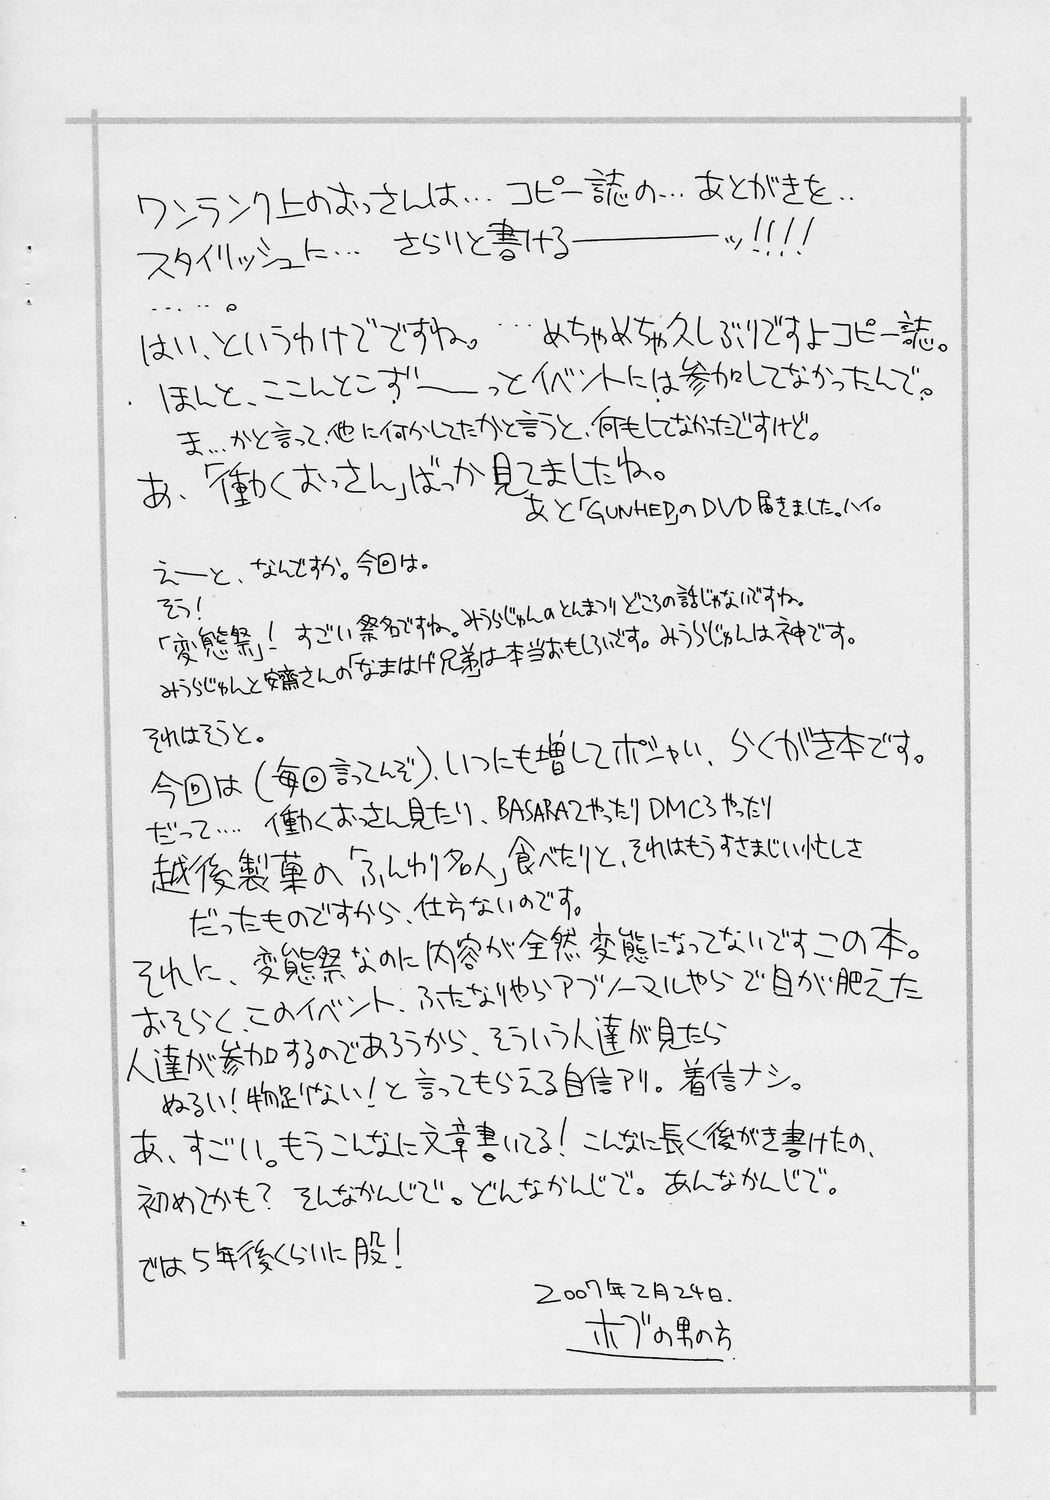 ワンランク上のおっさんは… コピー誌の… あとがきを‥
スタイリッシュに… さらりと書ける――――ッ!!!!
……。
はい、というわけでですね。…めちゃめちゃ久しぶりですよコピー誌。
ほんと、ここんとこず〜〜っとイベントには参加してなかったんで。
ま…かと言って、他に何かしてたかと言うと、何もしてなかったですけど。
あ、「働くおっさん」ばっか見てましたね。
あと「GUNHED」のDVD届きました。ハイ。
えーと、なんですか。今回は。
そう!
「変態祭」! すごい祭名ですね。みうらじゅんのとんまつりどころの話じゃないですね。
みうらじゅんと安齋さんの「なまはげ兄弟」は本当おもしろいです。みうらじゅんは神です。
それはそうと。
今回は(毎回言ってんぞ)、いつにも増してポジャい、らくがき本です。
だって…. 働くおっさん見たり、BASARA2やったりDMC3やったり
越後製菓の「ふんわり名人」食べたりと、それはもうすさまじい忙しさ
だったものですから、仕方ないのです。
それに、変態祭なのに内容が全然変態になってないですこの本。
おそらく、このイベント、ふたなりやらアブノーマルやらで目が肥えた
人達が参加するのであろうから、そういう人達が見たら
ぬるい!物足りない!と言ってもらえる自信アリ。着信ナシ。
あ、すごい。もうこんなに文章書いてる!こんなに長く後がき書けたの、
初めてかも?そんなかんじで。どんなかんじで。あんなかんじで。
では5年後くらいに股!
2007年2月24日.
ホブの男の方